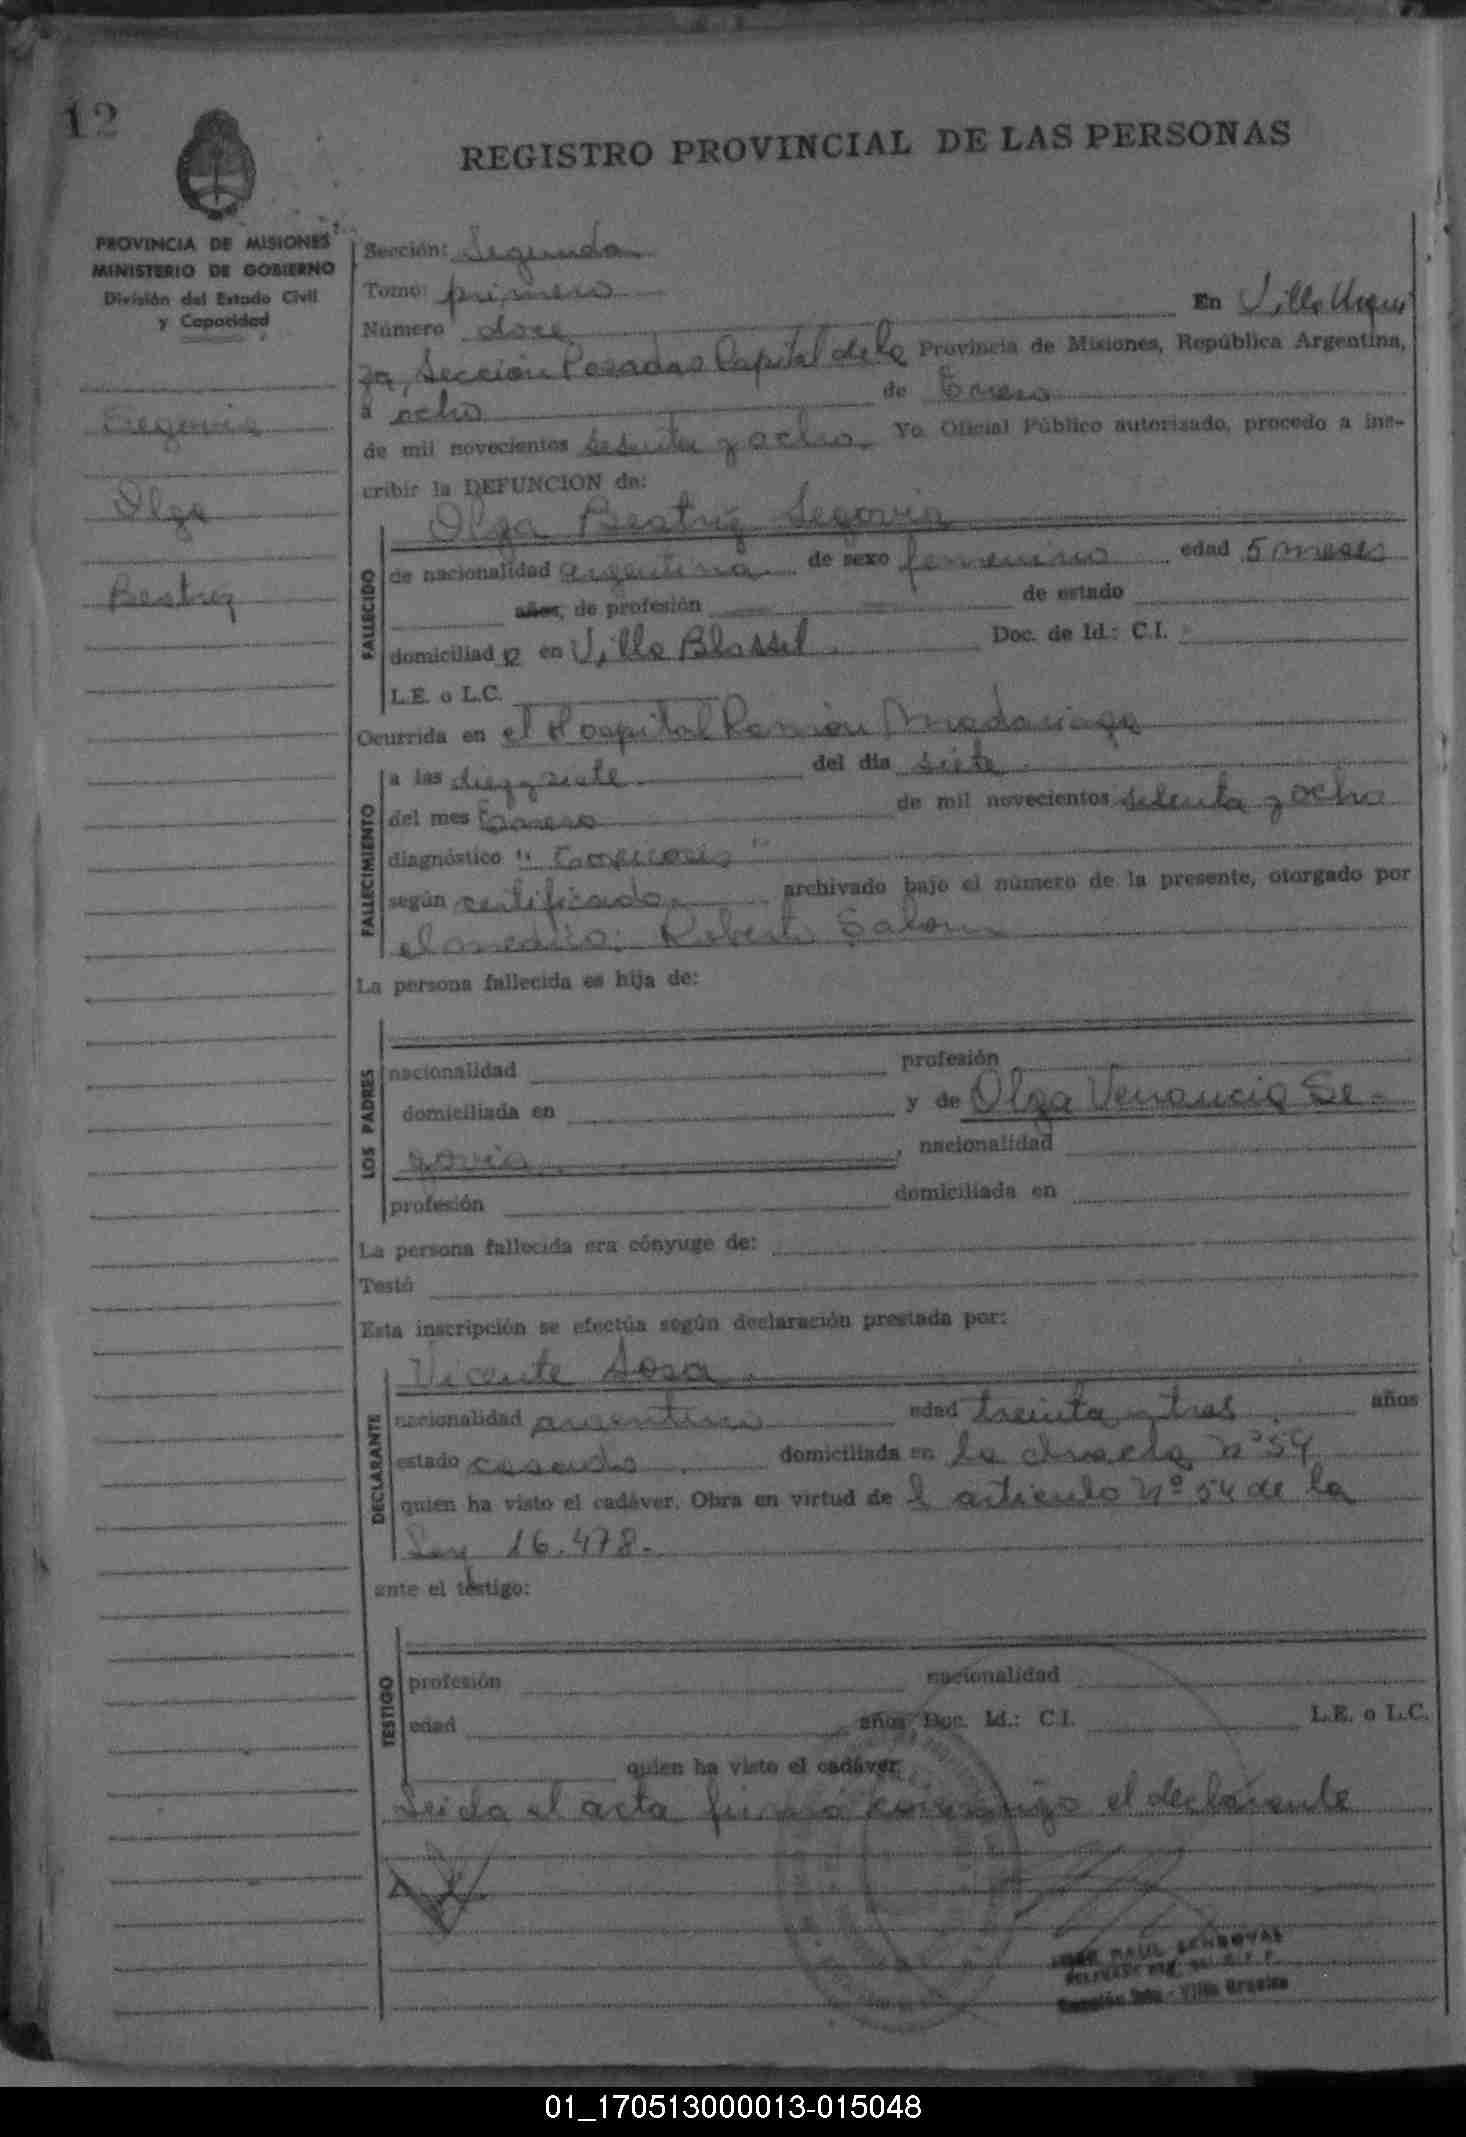 12
REGISTRO PROVINCIAL DE LAS PERSONAS
PROVINCIA DE MISIONES
MINISTERIO DE GOBIERNO
División del Estado Civil
y Capacidad
Segovia
Olga
Beatriz
Sección: Segunda
Tomo: primero
Número doce En Villa Urqui
za, Sección Posadas Capital de la Provincia de Misiones, República Argentina,
a ocho de Enero
de mil novecientos setenta y ocho. Yo Oficial Público autorizado, procedo a ins-
cribir la DEFUNCION de:
Olga Beatriz Segovia
FALLECIDO
de nacionalidad argentina de sexo femenino edad 5 meses
años, de profesión de estado
domiciliad a en Villa Blosset Doc. de Id.: C.I.
L.E. o L.C.
Ocurrida en el Hospital Ramón Madariaga
FALLECIMIENTO
a las diez y siete del dia siete
del mes Enero de mil novecientos setenta y ocho
diagnóstico
según certificado archivado bajo el número de la presente, otorgado por
el medico: Roberto
La persona fallecida es hija de:
LOS PADRES
nacionalidad profesión
domiciliada en y de Olga Venancia Se-
govia, nacionalidad
profesión domiciliada en
La persona fallecida era cónyuge de:
Testó
Esta inscripción se efectúa según declaración prestada por:
Vicente Sosa
DECLARANTE
nacionalidad argentino edad treinta y tres años
estado casado domiciliada en la chacra nº 59
quien ha visto el cadáver. Obra en virtud de l articulo nº 54 de la
Ley 16.478.-
ante el testigo:
TESTIGO
profesión nacionalidad
edad años, Doc. Id.: C.I. L.E. o L.C.
quien ha visto el cadáver,
Leida el acta firma conmigo el declarante
RAUL SANDOVAL
Sección 2da - Villa Urquiza
01_170513000013-015048